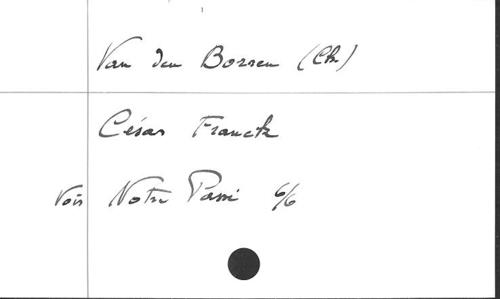 Van den Borren (Ch)
César Franck
Voir Notre Passé 6/6